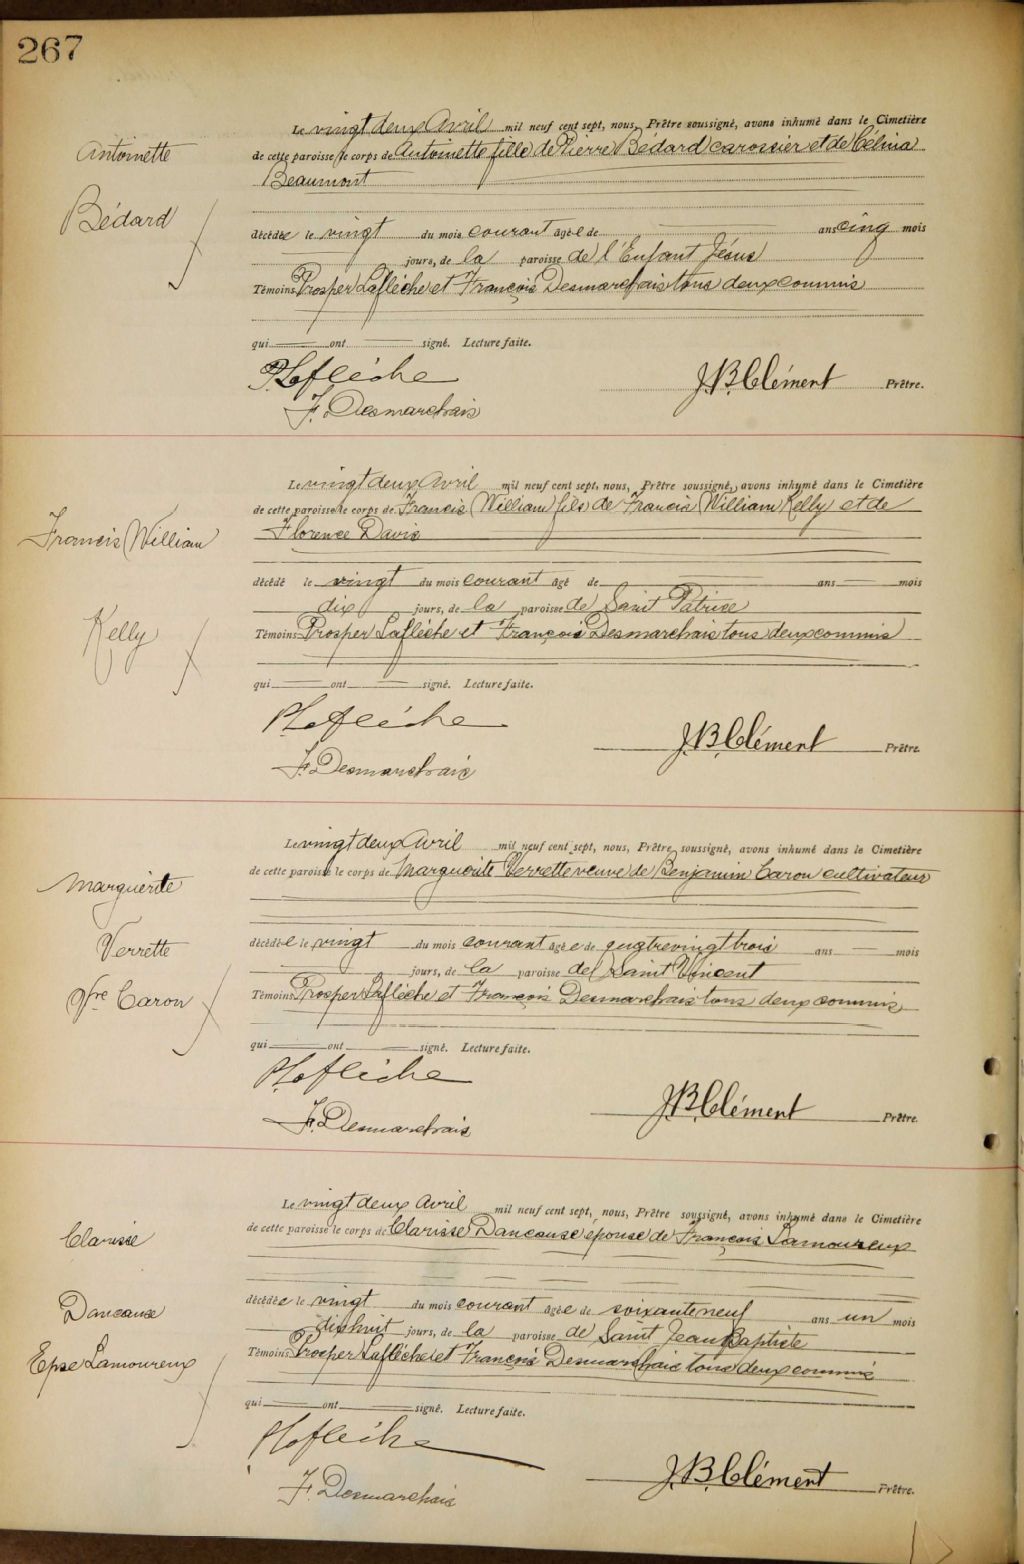 267
Antoinette
Bédard
Le vingt deux Avril mil neuf cent sept, nous, Prêtre soussigné, avons inhumé dans le Cimetière
de cette paroisse le corps de Antoinette fille de Pierre Bédard carossier et de Célina
Beaumont
décédée le vingt du mois courant agée de ans cinq mois
jours, de la paroisse de l'Enfant Jésus
Témoins Prosper Laflèche et François Desmarchais tous deux commis
qui ont signé. Lecture faite.
P. Laflèche
J. B. Clément Prêtre.
F. Desmarchais
Francis William
Kelly
Le vingt deux Avril mil neuf cent sept, nous, Prêtre soussigné, avons inhumé dans le Cimetière
de cette paroisse le corps de Francis William fils de Francis William Kelly et de
Florence Davis
décédé le vingt du mois courant agé de ans mois
dix jours, de la paroisse de Saint Patrice
Témoins Prosper Laflèche et François Desmarchais tous deux commis
qui ont signé. Lecture faite.
P. Laflèche
J. B. Clément Prêtre.
F. Desmarchais
Marguerite
Verrette
Vve Caron
Le vingt deux Avril mil neuf cent sept, nous, Prêtre soussigné, avons inhumé dans le Cimetière
de cette paroisse le corps de Marguerite Verrette veuve de Benjamin Caron cultivateur
décédée le vingt du mois courant agée de quatrevingt trois ans mois
jours, de la paroisse de Saint Vincent
Témoins Prosper Laflèche et François Desmarchais tous deux commis
qui ont signé. Lecture faite.
P. Laflèche
J. B. Clément Prêtre.
F. Desmarchais
Clarisse
Dancause
Epse Lamoureux
Le vingt deux Avril mil neuf cent sept, nous, Prêtre soussigné, avons inhumé dans le Cimetière
de cette paroisse le corps de Clarisse Dancause épouse de François Lamoureux
décédée le vingt du mois courant agée de soixante neuf ans un mois
dix huit jours, de la paroisse de Saint Jean Baptiste
Témoins Prosper Laflèche et François Desmarchais tous deux commis
qui ont signé. Lecture faite.
P. Laflèche
J. B. Clément Prêtre.
F. Desmarchais